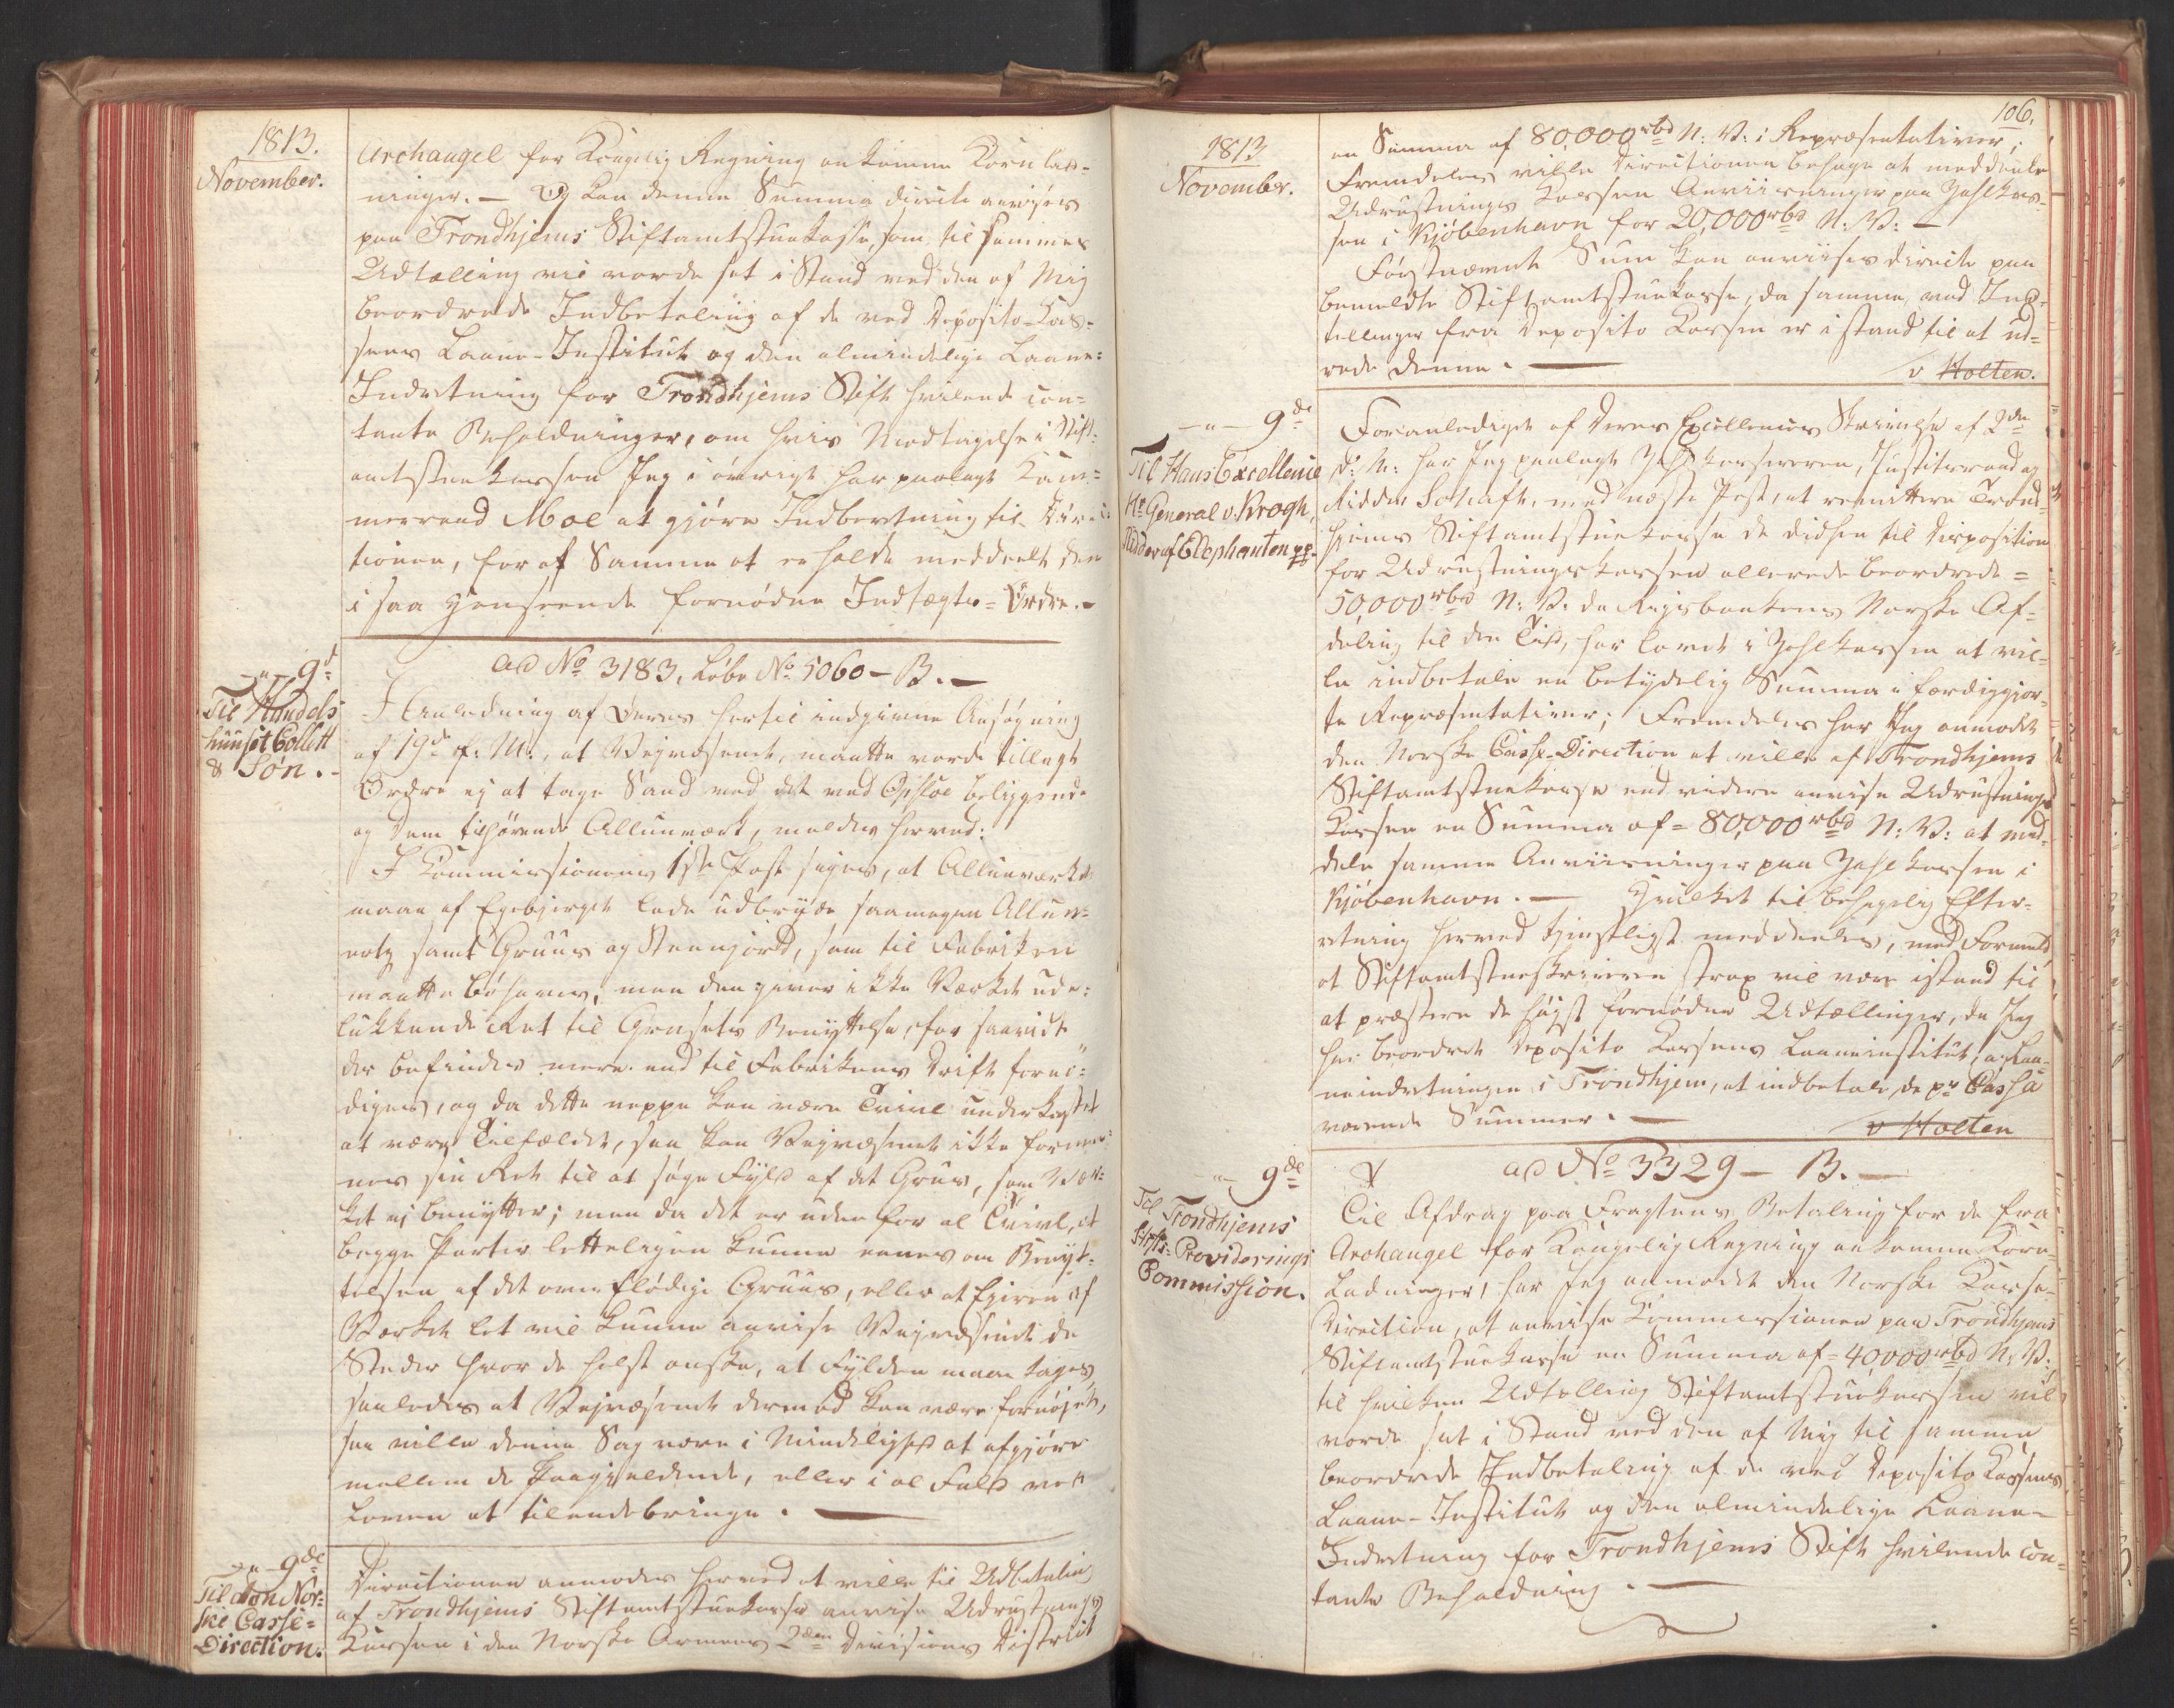 1813.
November.
Archangel for Kongelig Regning ankomne Kornlad-
ninger. — Og kan denne Summa directe anvises
paa Trondhjems Stiftamtstuekasse, som til sammes
Udtælling vil vorde sat i Stand ved den af Mig
beordrede Indbetaling af de ved Deposito-Kas-
sens Laane-Institut og den almindelige Laane-
Indretning for Trondhjems Stift hvilende con-
tante Beholdninger, om hvis Modtagelse i Stift-
amtstuekassen Jeg i øvrigt har paalagt Kam-
merraad Moe at gjøre Indberetning til Direc-
tionen, for af Samme at erholde meddeelt den
i saa Henseende fornødne Indtægts-Ordre. -
- " - 9d
Til Handels
huuset Collett
& Søn. -
ad No 3183. Løbe No 5060 - B. -
I Anledning af Deres hertil indgivne Ansøgning
af 19d f: M:, at Vejvæsenet, maatte vorde tillagt
Ordre ej at tage Sand med det ved Opsloe beliggende
og Dem tilhørende Allunværk, meldes herved:
I Kommissionens 1ste Post siges, at Allunværket
maae af Egebjerget lade udbryde saamegen Allun-
ertz samt Gruus og Steenjord, som til Fabriken
maatte behøves, men den giver ikke Værket ude-
lukkende Ret til Grusets Benyttelse, for saavidt
der befindes mere end til Fabrikens Drift fornø-
diges, og da dette neppe kan være Tvivl underkastet
at være Tilfældet, saa kan Vejvæsenet ikke formee-
nes sin Ret til at søge Fyld af det Gruus, som Vær-
ket ej benytter; men da det er uden for al Tvivl, at
begge Parter letteligen kunne enes om Benyt-
telsen af det overflødige Gruus, eller at Ejeren af
Værket let vil kunne anvise Vejvæsenet de
Steder hvor de helst ønske, at Fylden maae tages,
saaledes at Vejvæsenet dermed kan være fornøjet,
saa ville denne Sag være i Mindelighed at afgjøre
mellem de Paagjeldende, eller i al Fald ved
Loven at tilendebringe. —
- " - 9de
Til den Nor-
ske Casse-
Direction.
Directionen anmodes herved at ville til Udbetaling
af Trondhjems Stiftamtstuekasse anvise Udrustnings
Kassen i den Norske Armees 2den Divisions District
106.
1813
November.
en Summa af 80,000 rbd N: V: i Repræsentativer;
Fremdeles ville Directionen behage at meddeele
Udrustnings Kassen Anviisninger paa Zahlkas-
sen i Kjøbenhavn for 20,000 rbd N: V: —
Førstnævnte Sum kan anviises directe paa
bemeldte Stiftamtstuekasse, da samme ved Ind-
tællinger fra Deposito Kassen er i stand til at ud-
rede denne. —
v Holten.
- " - 9de
Til Hans Excellence
Hr General v. Krogh,
Ridder af Elephanten pp.
Foranlediget af Deres Excellences Skrivelse af 2den
d: M: har Jeg paalagt Zahlkasserer, Justitsraad og
Ridder Schaft, med næste Post, at remittere Trond-
hjems Stiftamtstuekasse de didhen til Disposition
for Udrustningskassen allerede beordrede =
50,000 rbd N: V: da Rigsbankens Norske Af-
deling til den Tid, har lovet i Zahlkassen at vil-
le indbetale en betydelig Summa i færdiggjor-
te Repræsentativer; Fremdeles har Jeg anmodet
den Norske Casse-Direction at ville af Trondhjems
Stiftamtstuekasse end videre anvise Udrustnings
Kassen en Summa af = 80,000 rbd N: V: at med-
dele samme Anviisninger paa Zahlkassen i
Kjøbenhavn. — Hvilket til behagelig Efter-
retning herved tjenstligst meddeeles, med Formeld
at Stiftamtstueskriveren strax vil være istand til
at præstere de højst fornødne Udtællinger, da Jeg
har beordret Deposito Kassens Laaneinstitut, og Laa-
neindretningen i Trondhjem, at indbetale, de pr Cassa
værende Summer. —
v Holten
- " - 9de
Til Trondhjems
Stifts-Providerings
Commission.
ad No 3329 - B. —
Til Afdrag paa Fragtens Betaling for de fra
Archangel for Kongelig Regning ankomne Korn-
Ladninger, har Jeg anmodet den Norske Casse-
Direction, at anvise Kommissionen paa Trondhjems
Stiftamtstuekasse en Summa af = 40,000 rbd N: V:
til hvilken Udtælling Stiftamtstuekassen vil
vorde sat i Stand ved den af Mig til samme
beordrede Indbetaling af de ved Deposito Kassens
Laane-Institut og den almindelige Laane-
Indretning for Trondhjems Stift hvilende con-
tante Beholdning. —